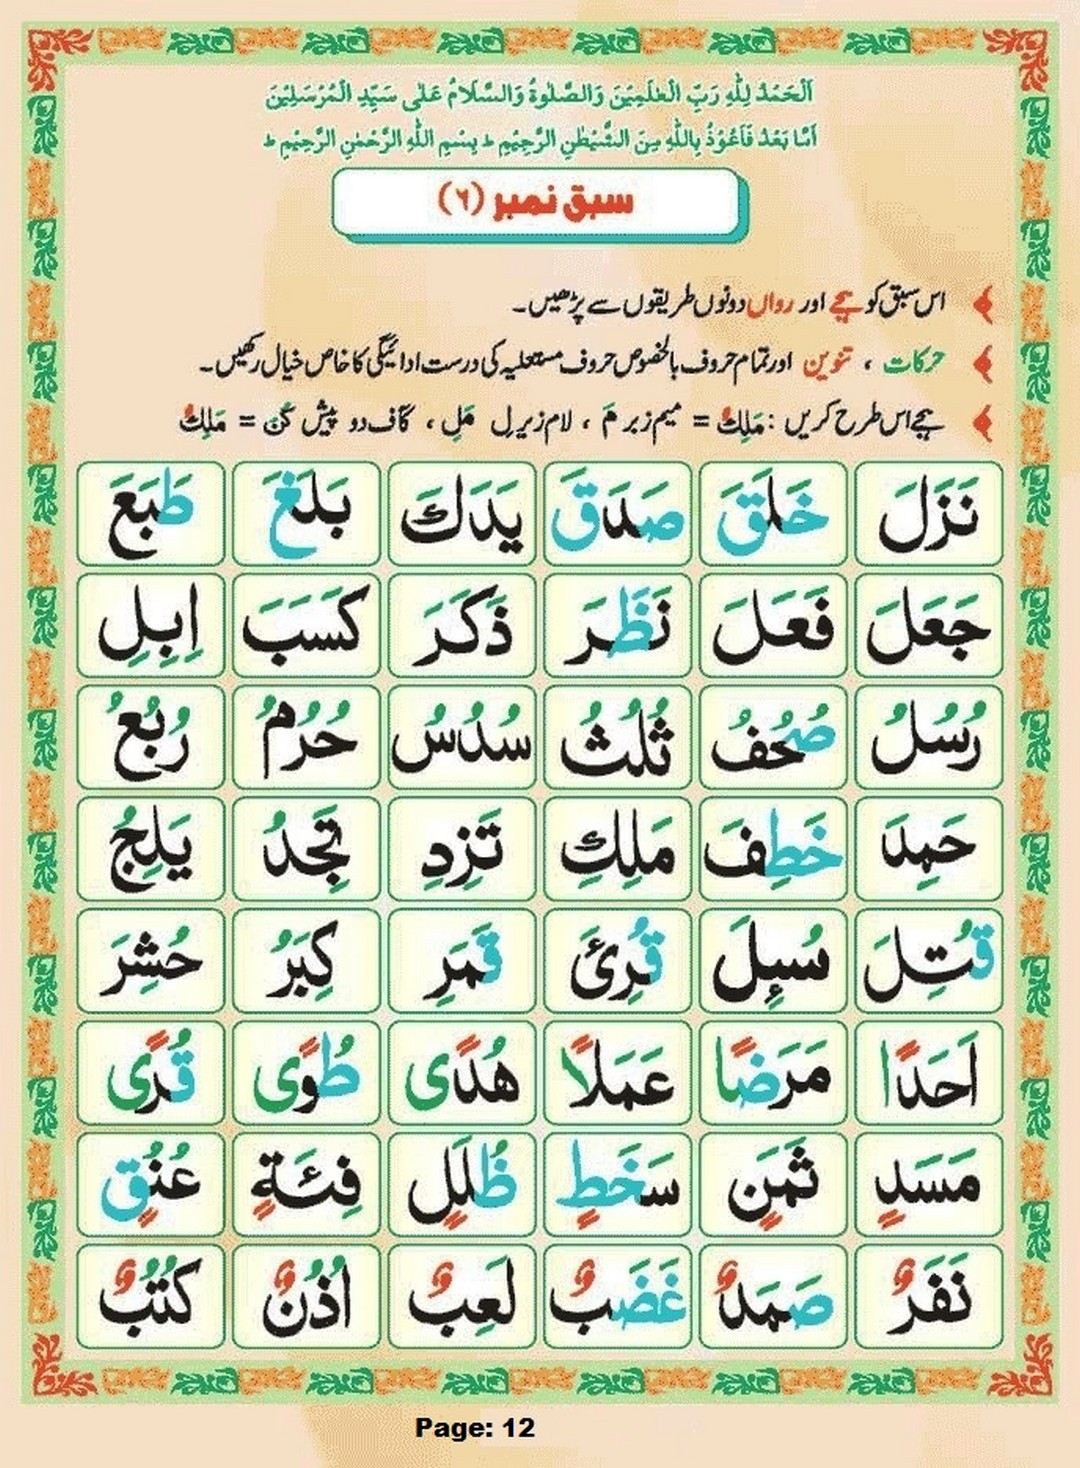 اَلْحَمْدُ لِلّٰهِ رَبِّ الْعٰلَمِیْنَ وَالصَّلٰوةُ وَالسَّلَامُ عَلٰی سَیِّدِ الْمُرْسَلِیْنَ
اَمَّا بَعْدُ فَاَعُوْذُ بِاللّٰهِ مِنَ الشَّیْطٰنِ الرَّجِیْمِ ط بِسْمِ اللّٰهِ الرَّحْمٰنِ الرَّحِیْمِ ط
سبق نمبر (۶)
اس سبق کو ہجے اور رواں دونوں طریقوں سے پڑھیں۔
حرکات ، تنوین اور تمام حروف بالخصوص حروف مستعلیہ کی درست ادائیگی کا خاص خیال رکھیں۔
ہجے اس طرح کریں : مَلِكٌ = میم زبر مَ ، لام زیر لِ مَلِ ، کاف دو پیش كٌ = مَلِكٌ
نَزَلَ خَلَقَ صَدَقَ یَدَكَ بَلَغَ طَبَعَ
جَعَلَ فَعَلَ نَظَرَ ذَكَرَ كَسَبَ اِبِلِ
رُسُلُ صُحُفُ ثُلُثُ سُدُسُ حُرُمُ رُبُعُ
حَمِدَ خَطِفَ مَلِكِ تَزِدِ تَجِدُ یَلِجُ
قُتِلَ سُىِٕلَ قُرِئَ قَمَرِ كِبَرُ حُشِرَ
اَحَدًا مَرَضًا عَمَلًا هُدًی طُوًی قُرًی
مَسَدٍ ثَمَنٍ سَخَطٍ ظُلَلٍ فِئَةٍ عُنُقٍ
نَفَرٌ صَمَدٌ غَضَبٌ لَعِبٌ اُذُنٌ كُتُبٌ
Page: 12